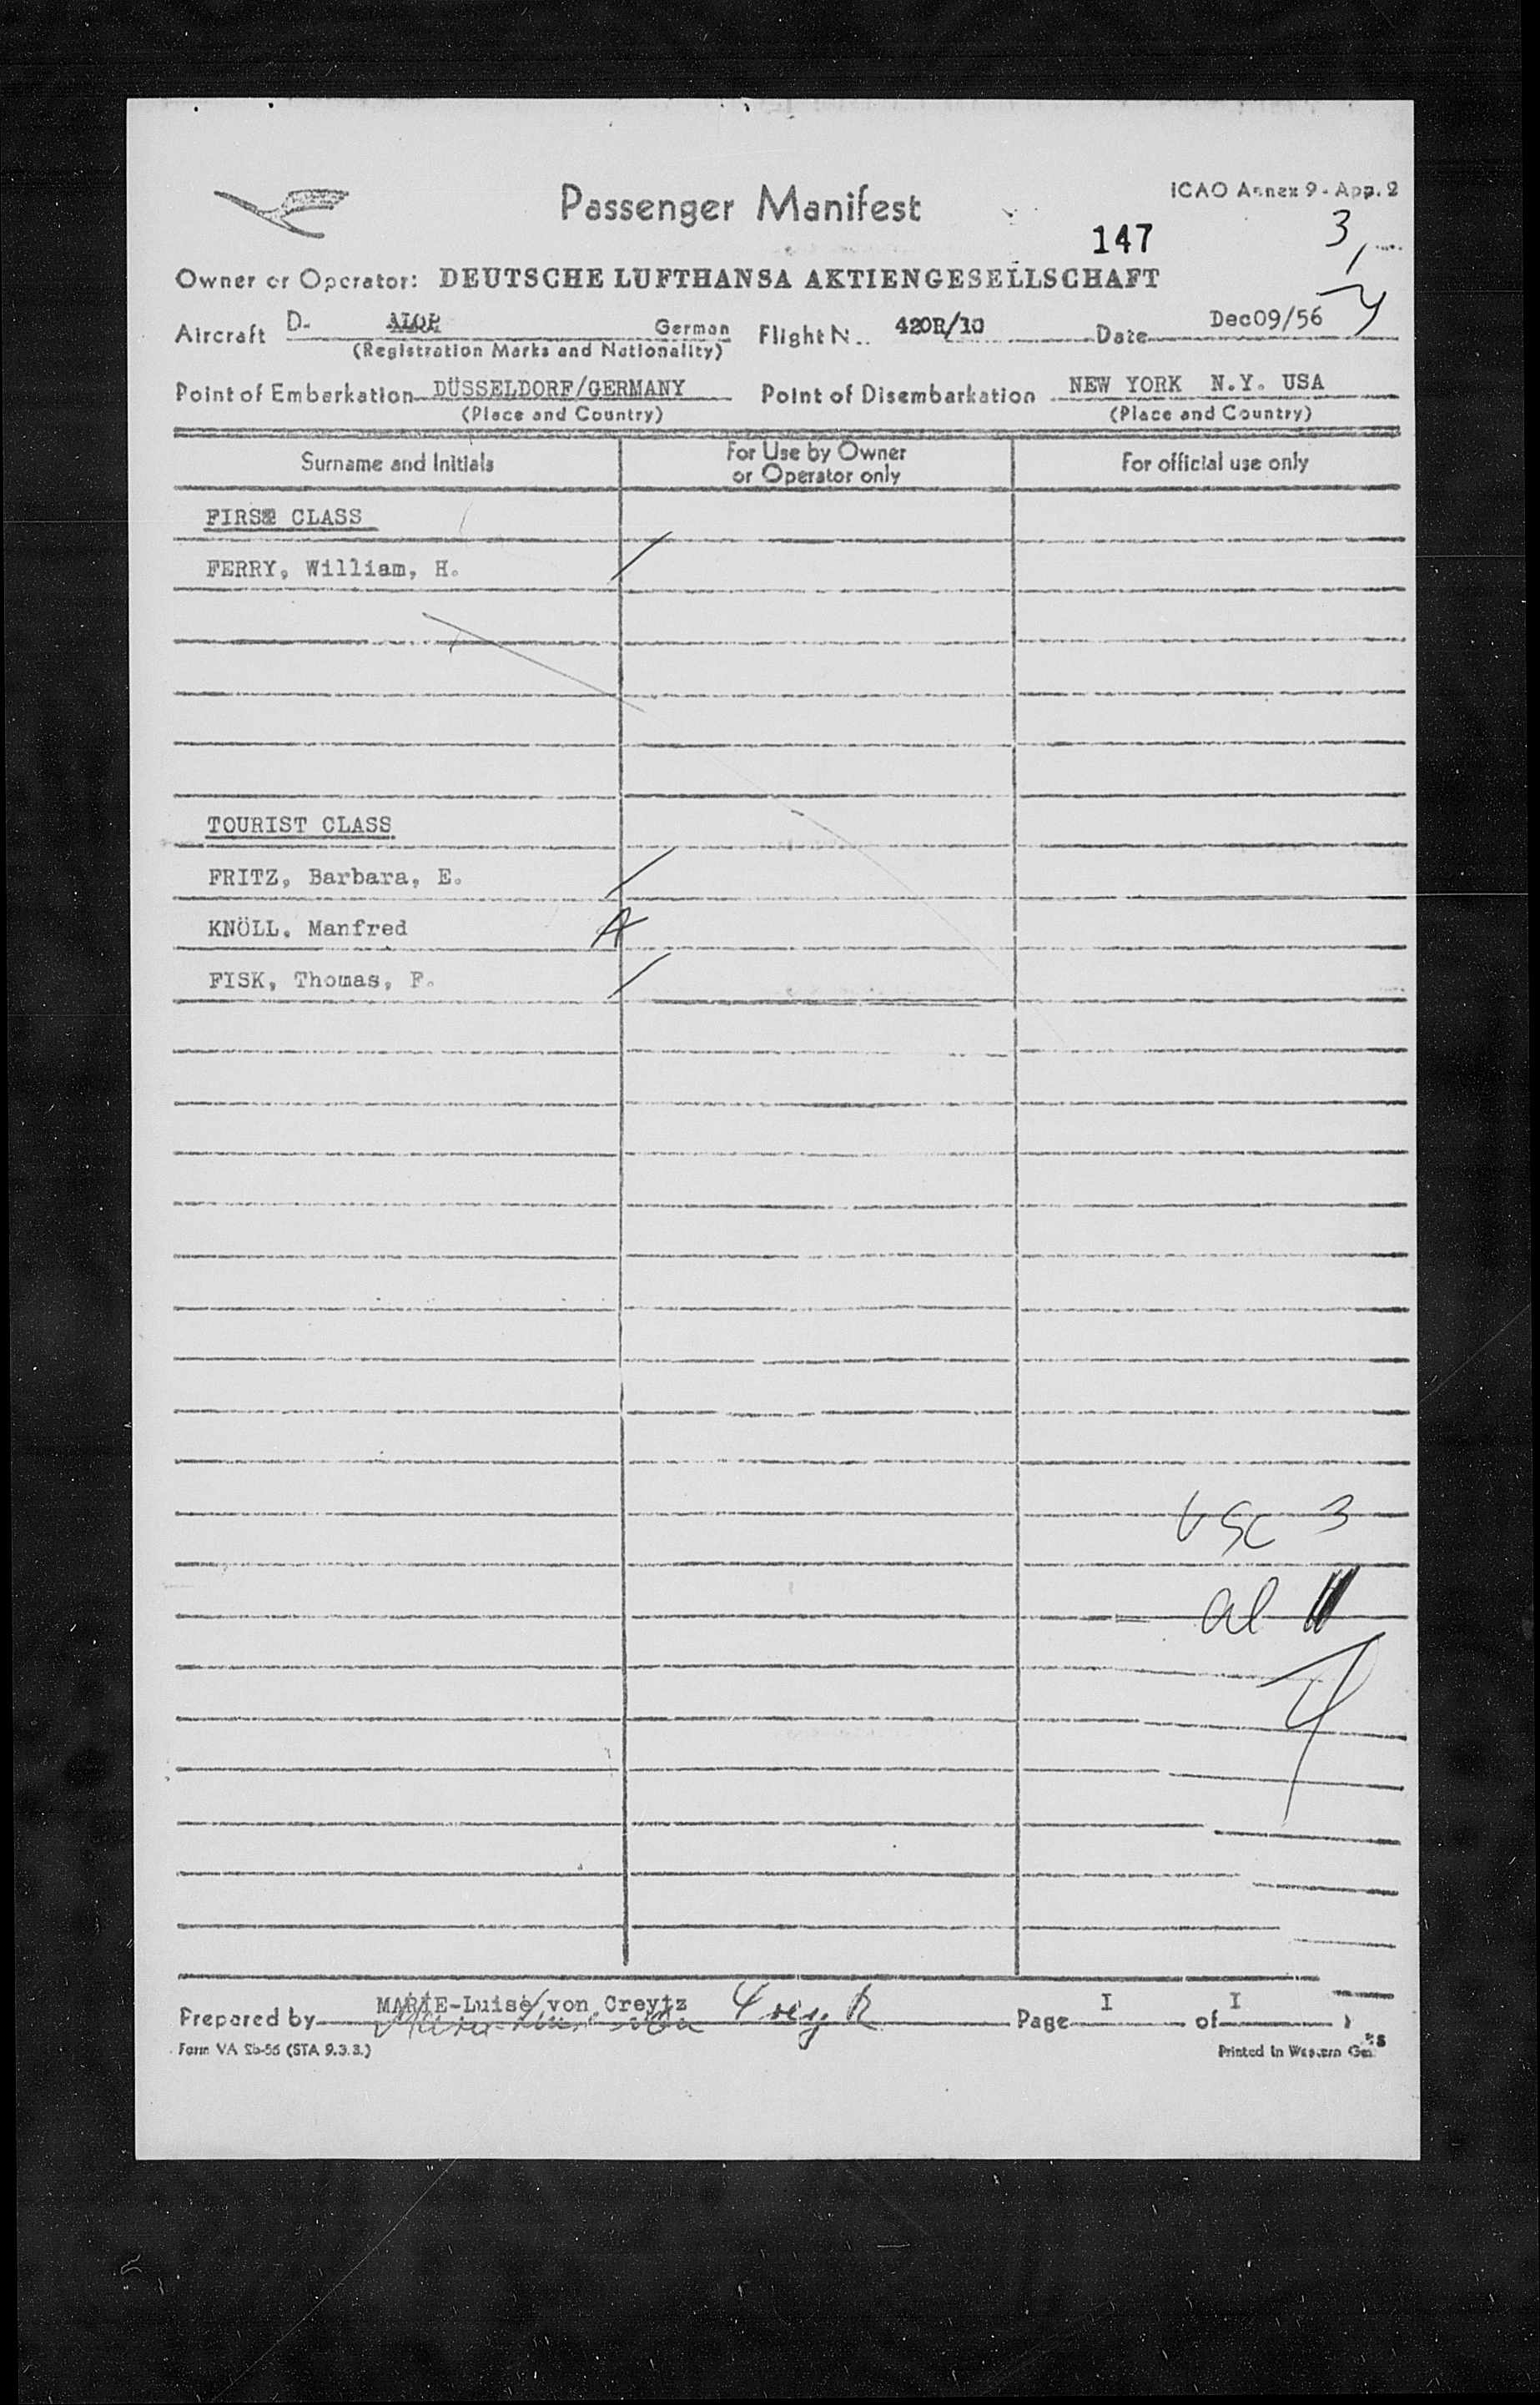 Passenger Manifest
ICAO Annex 9 - App. 2
147
3,
Owner or Operator: DEUTSCHE LUFTHANSA AKTIENGESELLSCHAFT
Aircraft D- German Flight N.. 420R/10 Date Dec09/56 y
(Registration Marks and Nationality)
Point of Embarkation DÜSSELDORF/GERMANY Point of Disembarkation NEW YORK N.Y. USA
(Place and Country) (Place and Country)
Surname and Initials For Use by Owner or Operator only For official use only
FIRST CLASS
FERRY, William, H.
TOURIST CLASS
FRITZ, Barbara, E.
KNÖLL. Manfred A
FISK, Thomas, F.
USC 3
al
Prepared by MARIE-Luise von Creytz Page I of I
Form VA 2b-56 (STA 9.3.3.) Printed in Western Ger.